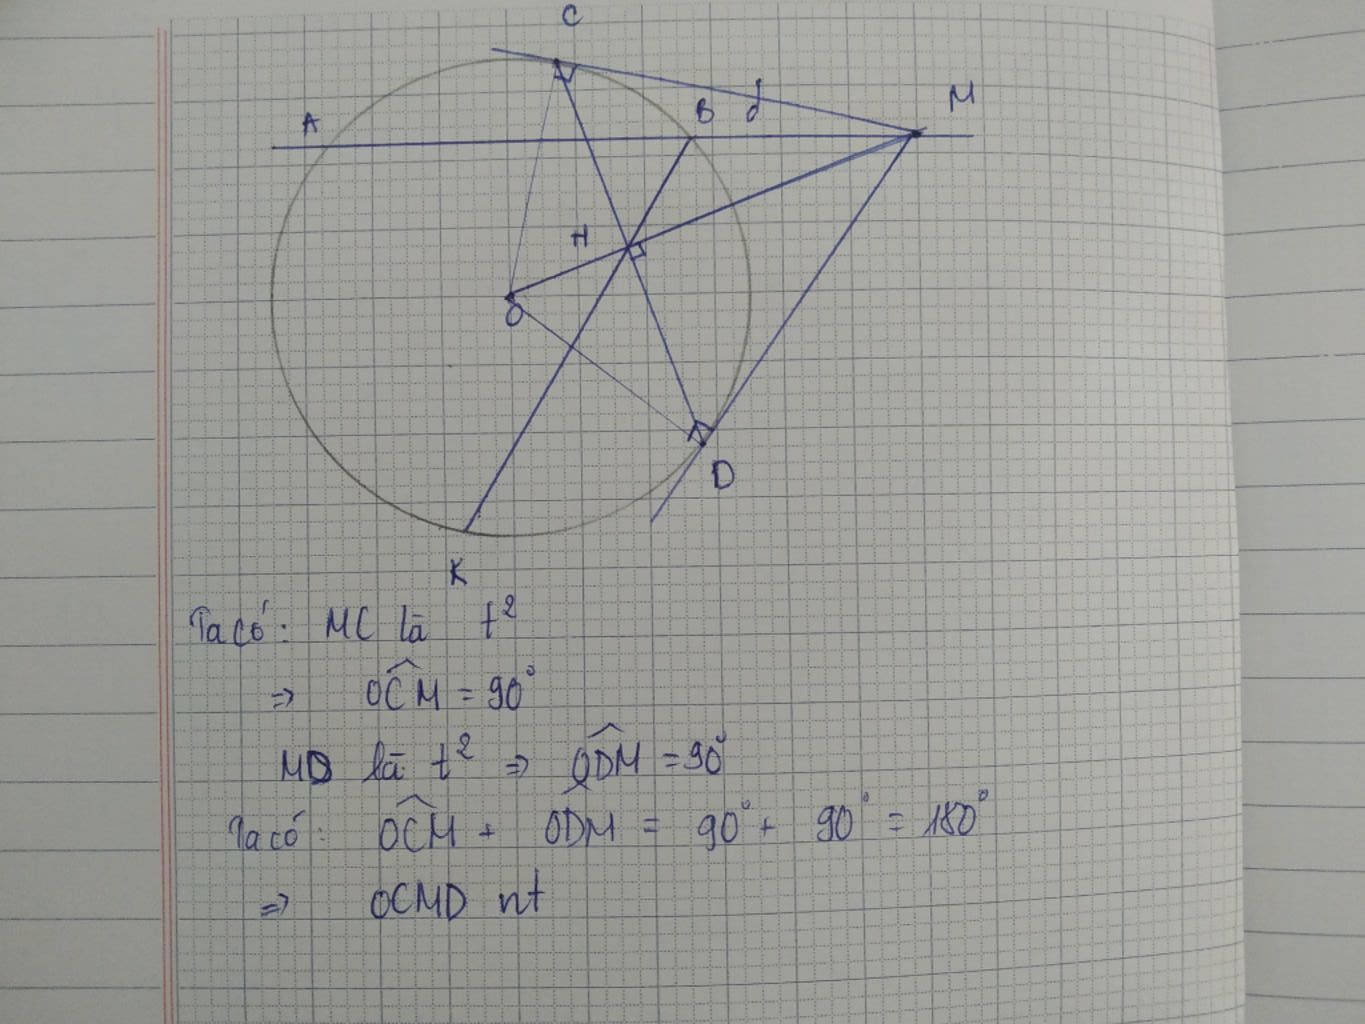 C
A
B
d
M
H
O
D
K
Ta có: MC là t²
=> OĈM = 90°
MD là t² => ODM = 90°
Ta có: OĈM + ODM = 90° + 90° = 180°
=> OCMD nt